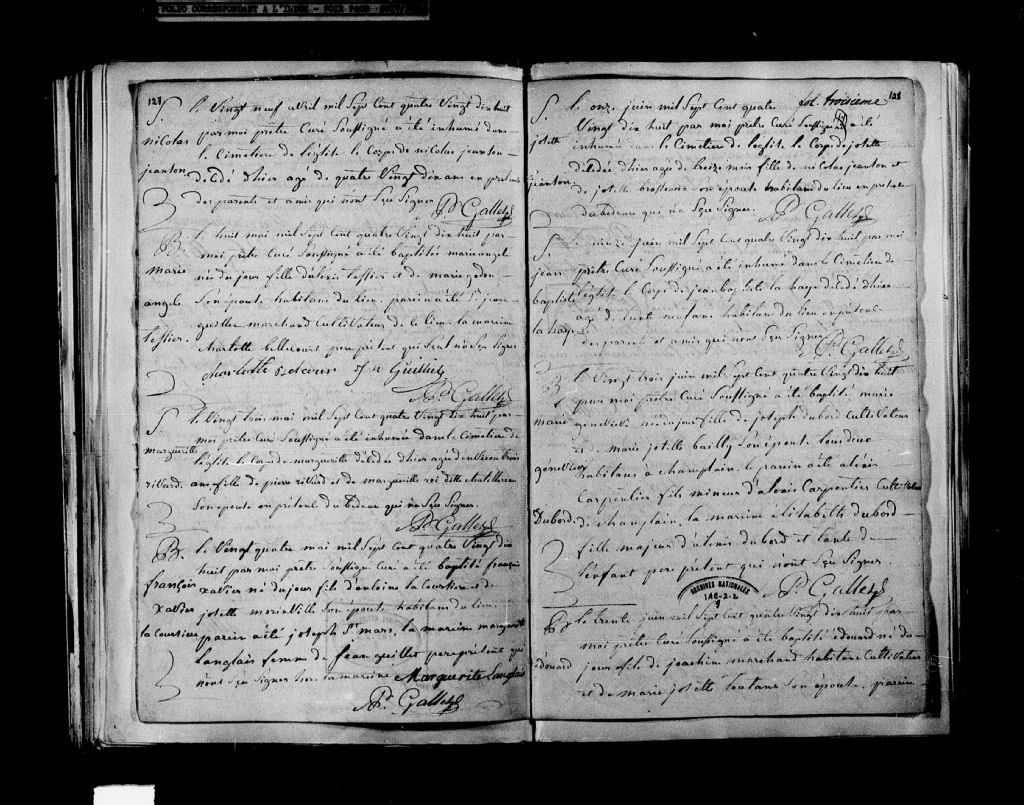 FOLIO CORRESPONDANT A L'INDEX
127
S. le Vingt neuf avril mil Sept Cent quatre Vingt dix huit
par moi prêtre Curé Soussigné a été inhumé dans
nicolas le Cimetiere de l'églite le Corps de nicolas jeanson
jeanson décédé d'hier agé de quatre Vingt dix ans en presence
des parents et amis qui n'ont Sçu Signer
Pd Gallet
B. le huit mai mil Sept Cent quatre Vingt dix huit par
moi prêtre Curé Soussigné a été baptitée marie angel
marie née du jour fille d'alexis tessier et de marie
angele Son epouse habitans du lieu, parein a été jean
guillet marchand Cultivateur de ce lieu la mareine
tessier. charlotte bellecourt pere présent qui Seul n'a Sçu Signer
charlotte Belcour Guillet
Pd Gallet
S. le Vingt trois mai mil Sept Cent quatre Vingt dix huit par
moi prêtre Curé Soussigné a été inhumée dans le Cimetiere de
margueritte l'églite le Corps de marguerite décédée d'hier agée d'environ trois
rivard. ans fille de pierre rivard et de marguerite roi
Son epouse en présence du Bedeau qui n'a Sçu Signer
Pd Gallet
B. le Vingt quatre mai mil Sept Cent quatre Vingt dix
huit par moi prêtre Soussigné Curé a été baptité françois
françois xavier né du jour fils d'antoine la Coursiere et de
xavier josette Son epouse habitans du lieu
la Coursiere parein a été joseph St mars, la mareine marguerite
langlais femme de jean guillet pere présent qui
n'ont Sçu Signer la mareine Marguerite Langlais
Pd Gallet
fol. troisieme
128
S. le onze juin mil Sept Cent quatre
Vingt dix huit par moi prêtre Curé Soussigné a été
josette inhumé dans le Cimetiere de l'églite le Corps de josette
jeanson décédé d'hier agée de treize mois fille de nicolas jeanson et
de josette Son épouse habitans du lieu en présence
du bedeau qui n'a Sçu Signer.
Pd Gallet
S. le juin mil Sept Cent quatre Vingt dix huit par moi
jean prêtre Curé Soussigné a été inhumé dans le Cimetiere de
baptiste l'églite le Corps de jean baptiste la haye décédé d'hier
la haye agé de habitans du lieu en présence
des parents et amis qui n'ont Sçu Signer
Pd Gallet
B. le Vingt trois juin mil Sept Cent quatre Vingt dix huit
par moi prêtre Curé Soussigné a été baptité marie
marie genevieve née du jour fille de joseph dubord Cultivateur
et de marie josette bailly Son épouse tous deux
génevieve habitans à champlain. le parein a été alexis
Carpentier fils mineur d'alexis Carpentier Cultivateur
Dubord. de champlain, la mareine elitabette dubord
fille majeur d'alexis dubord et tante de
l'enfant pere présent qui n'ont Sçu Signer
Pd Gallet
ARCHIVES NATIONALES
B. le trente juin mil Sept Cent quatre Vingt dix huit par
moi prêtre Curé Soussigné a été baptité édouard né du
édouard jour fils de joachim marchand habitans Cultivateur
et de marie josette Son épouse, parein